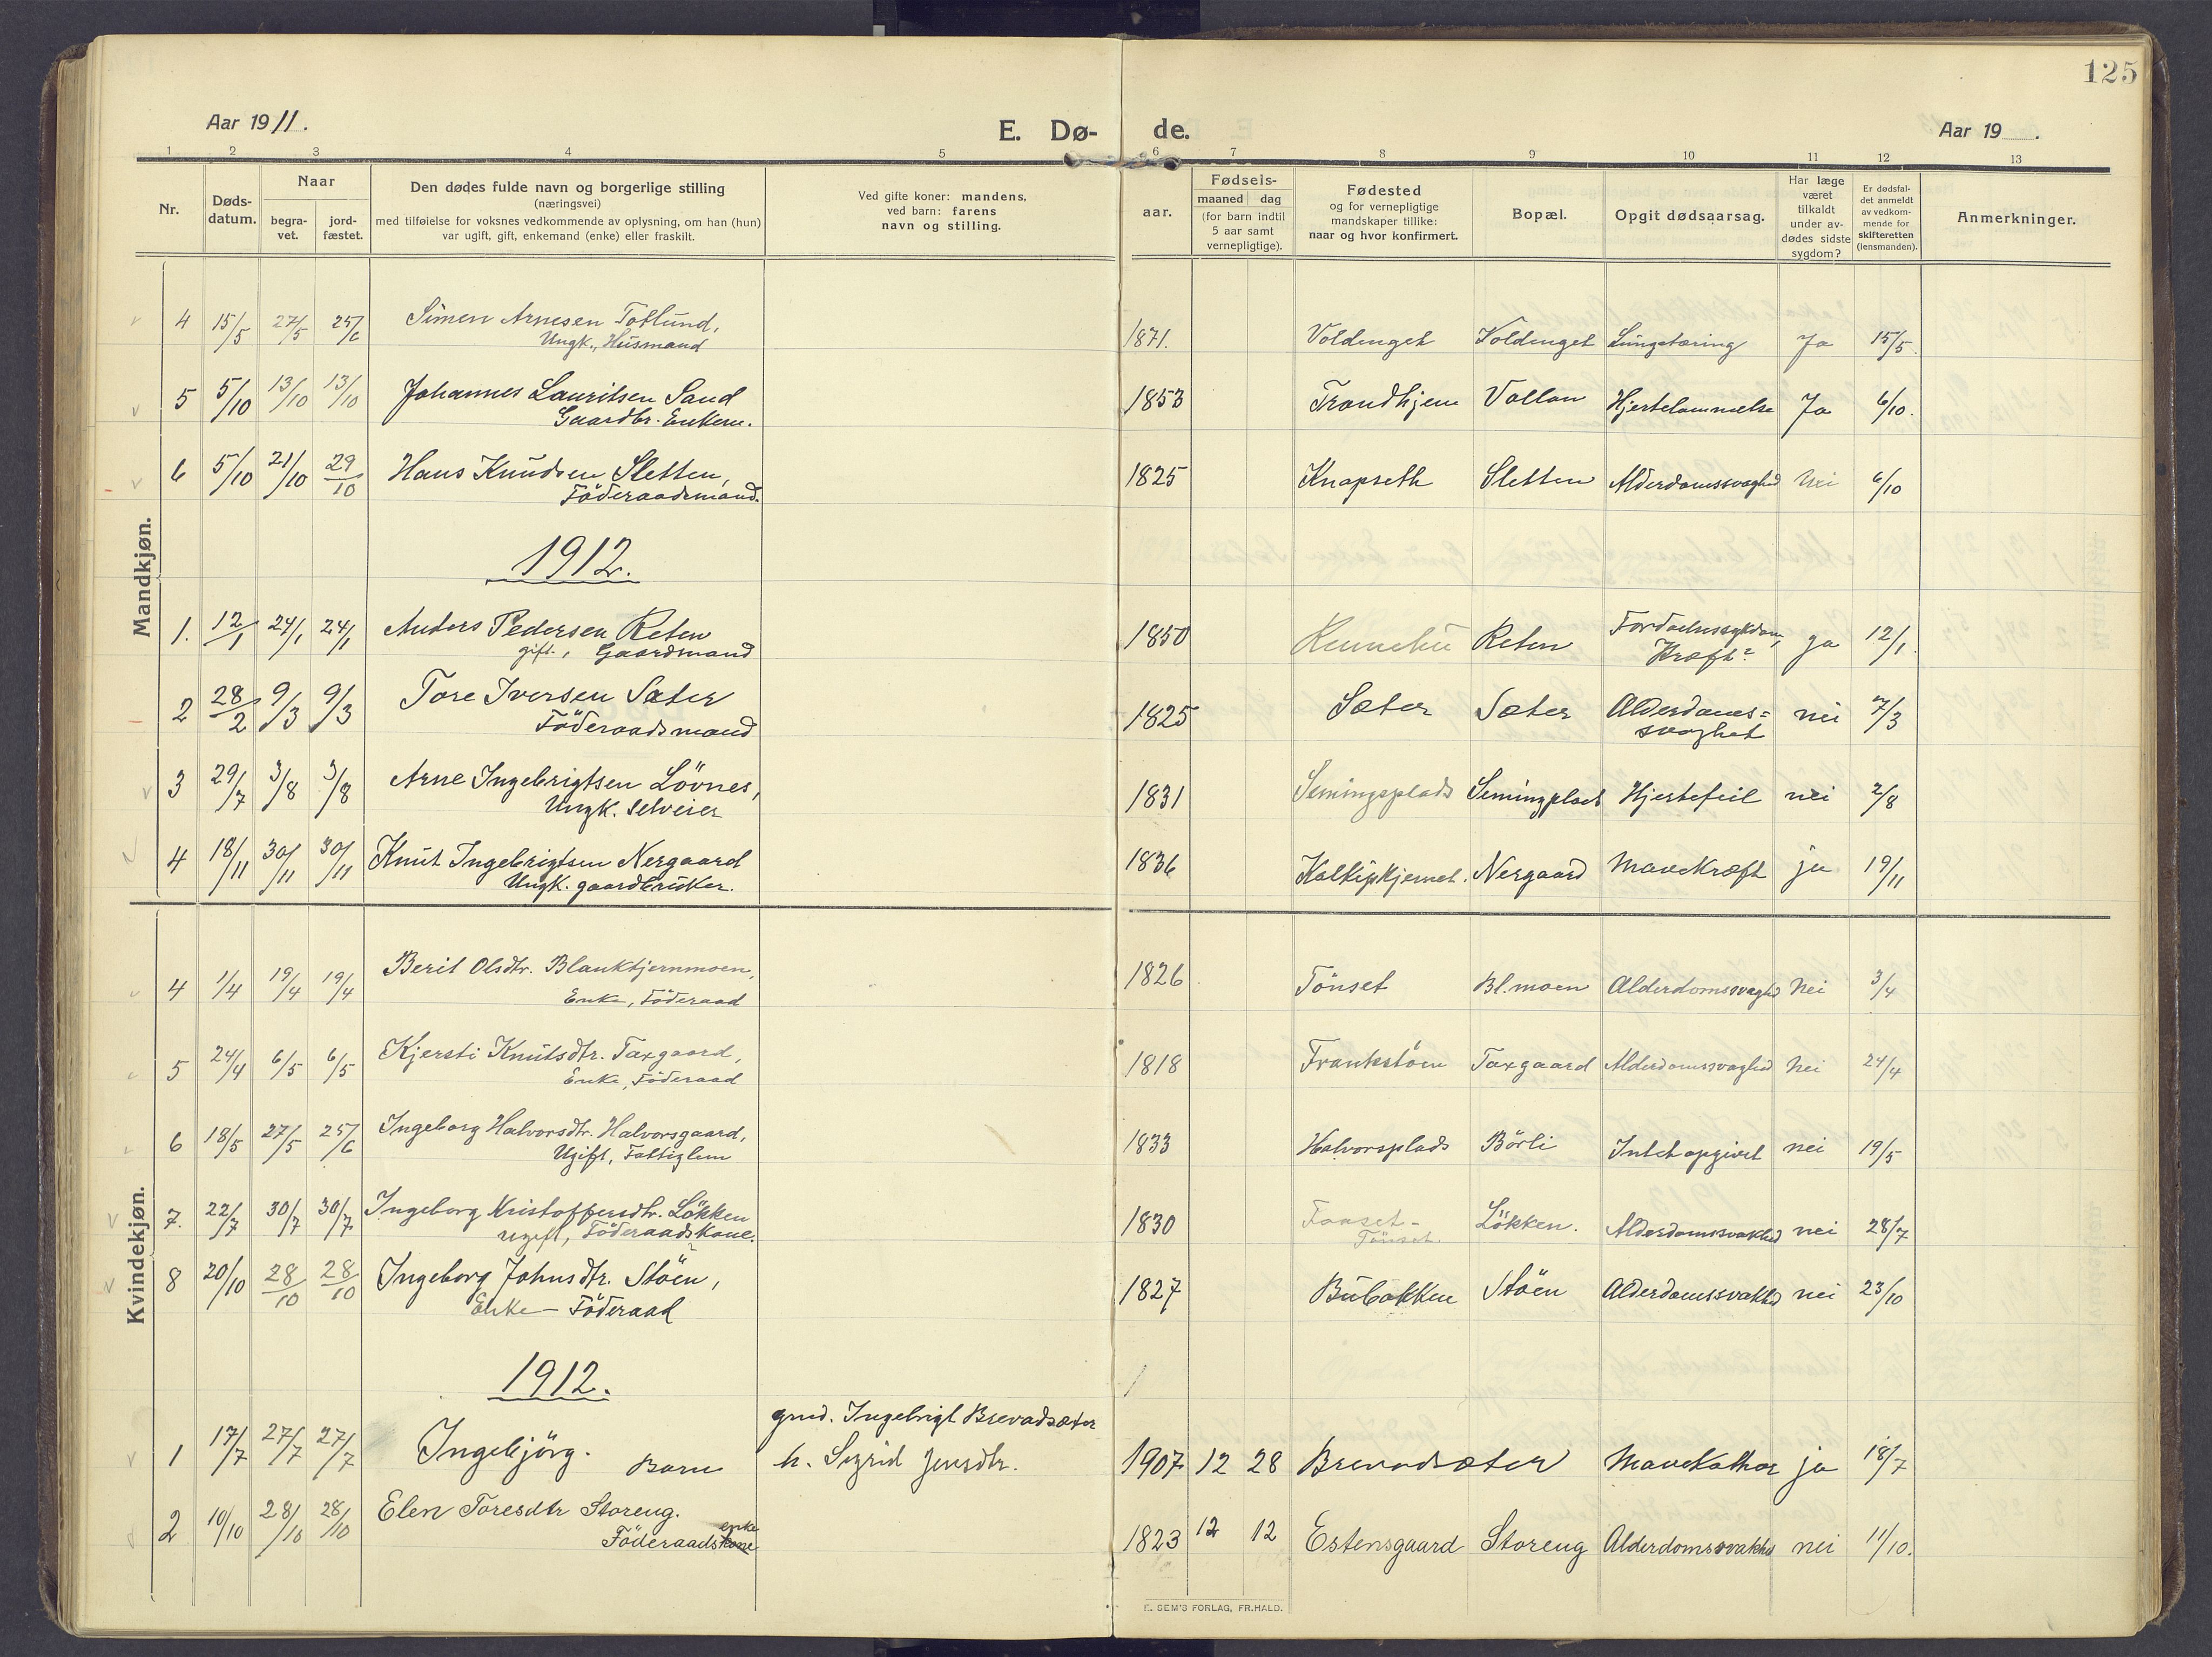 125
Aar 1911.
E. Dø- de.
Aar 19 .
1 2 3 4 5 6 7 8 9 10 11 12 13
Nr.
Døds-
datum.
Naar
begra-
vet.
jord-
fæstet.
Den dødes fulde navn og borgerlige stilling
(næringsvei)
med tilføielse for voksnes vedkommende av oplysning, om han (hun)
var ugift, gift, enkemand (enke) eller fraskilt.
Ved gifte koner: mandens,
ved barn: farens
navn og stilling.
aar.
Fødsels-
maaned dag
(for barn indtil
5 aar samt
vernepligtige).
Fødested
og for vernepligtige
mandskaper tillike:
naar og hvor konfirmert.
Bopæl.
Opgit dødsaarsag.
Har læge
været
tilkaldt
under av-
dødes sidste
sygdom?
Er dødsfal-
det anmeldt
av vedkom-
mende for
skifteretten
(lensmanden).
Anmerkninger.
Mandkjøn.
4 15/5 27/5 25/6 Simen Arnesen Totlund, 1871. Voldenget Voldenget Lungetæring Ja 15/5.
Ungk., Husmand
5 5/10 13/10 13/10 Johannes Lauritsen Sand 1853 Trondhjem Vollan Hjertelammelse Ja 6/10.
Gaardbr. Enkem.
6 5/10 21/10 29/10 Hans Knudsen Sletten, 1825 Knapseth Sletten Alderdomssvaghed Nei 6/10
Föderaadsmand.
1912.
1. 12/1 24/1 24/1 Anders Pedersen Reten 1850 Reten Fordøelsessykdom, ja 12/1
gift., Gaardmand Kræft?
2 28/2 9/3 9/3 Tore Iversen Sæter 1825 Sæter Sæter Alderdoms= nei 7/3
Föderaadsmand svaghet
3 29/7 3/8 3/8 Arne Ingebrigtsen Lövnes, 1831 Semingsplads Semingplads Hjertefeil nei 2/8
Ungk. selveier
4 18/11 30/11 30/11 Knut Ingebrigtsen Nergaard 1836 Nergaard Mavekræft ja 19/11
Ungk. gaardbruker.
Kvindekjøn.
4 1/4 19/4 19/4 Berit Olsdtr. Blanktjernmoen, 1826 Tönset Bl.moen Alderdomssvaghed Nei 3/4
Enke, Föderaad
5 24/4 6/5 6/5 Kjersti Knutsdtr. Taxgaard, 1818 Frankstöen Taxgaard Alderdomssvaghed Nei 24/4
Enke, Föderaad
6 18/5 27/5 25/6 Ingeborg Halvorsdtr. Halvorsgaard, 1833 Halvorsplads Börli Intet opgivet nei 19/5
Ugift, Fattiglem
7. 22/7 30/7 30/7 Ingeborg Kristoffersdtr. Lökken 1830 Fonset- Lökken. Alderdomssvakhed nei 28/7
ugift, Föderaadskone. Tönset.
8 20/10 28/10 28/10 Ingeborg Johnsdtr. Stöen, 1827 Bubakken Stöen Alderdomssvakhed nei 23/10
Enke - Föderaad
1912.
gmd. Ingebrigt Brevadsæter
1 17/7 27/7 27/7 Ingebjörg. Barn h. Sigrid Jensdtr. 1907 12 28 Brevadsæter Mavekathar ja 18/7
2 10/10 28/10 28/10 Elen Toresdtr Storeng. 1823 12 12 Estensgaard Storeng Alderdomssvakhed nei 11/10.
enke
Föderaadskone
E. SEM'S FORLAG, FR.HALD.